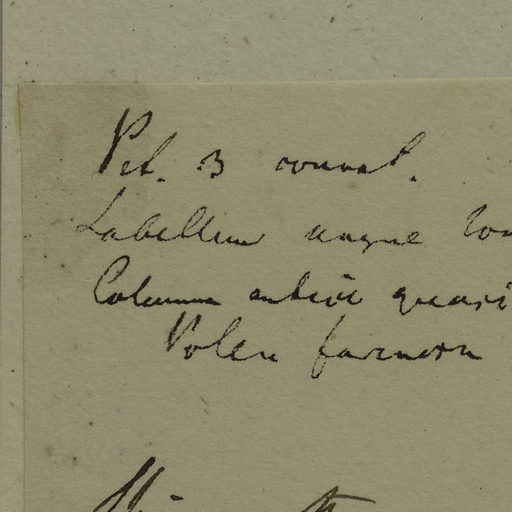 Pet. 3 connat.
Labellum ungue
Columna antice quasi
Polen farinosn